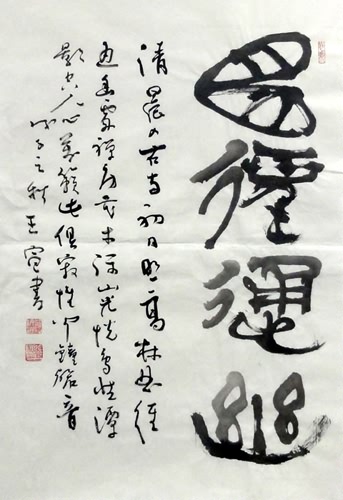 曲徑通幽
清晨入古寺初日照高林曲徑
通幽處禪房花木深山光悅鳥性潭
影空人心萬籟此俱寂惟聞鐘磬音
子之秋王書